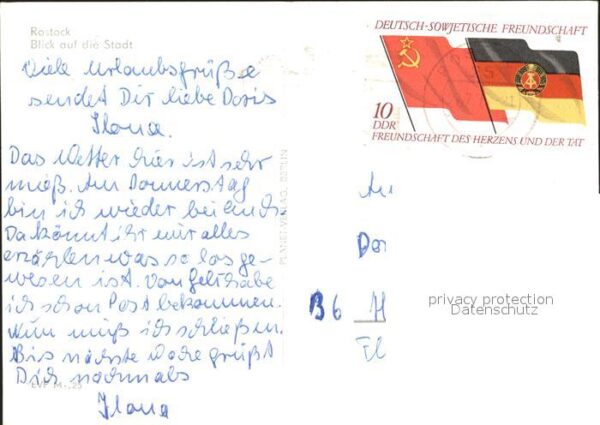 Rostock
Blick auf die Stadt
Viele Urlaubsgrüße
sendet Dir liebe Doris
Ilona.
Das Wetter hier ist sehr
mäß. Am Donnerstag
bin ich wieder bei Euch.
Da könnt ihr mir alles
erzählen was so los ge-
wesen ist. Von
ich schon Post bekommen.
Nun muß ich schließen.
Bis nächste Woche grüßt
Dich nochmals
Ilona
EVP M -,25
PLANET-VERLAG BERLIN
DEUTSCH-SOWJETISCHE FREUNDSCHAFT
10
DDR
FREUNDSCHAFT DES HERZENS UND DER TAT
An
Dor
B6 H
privacy protection
Datenschutz